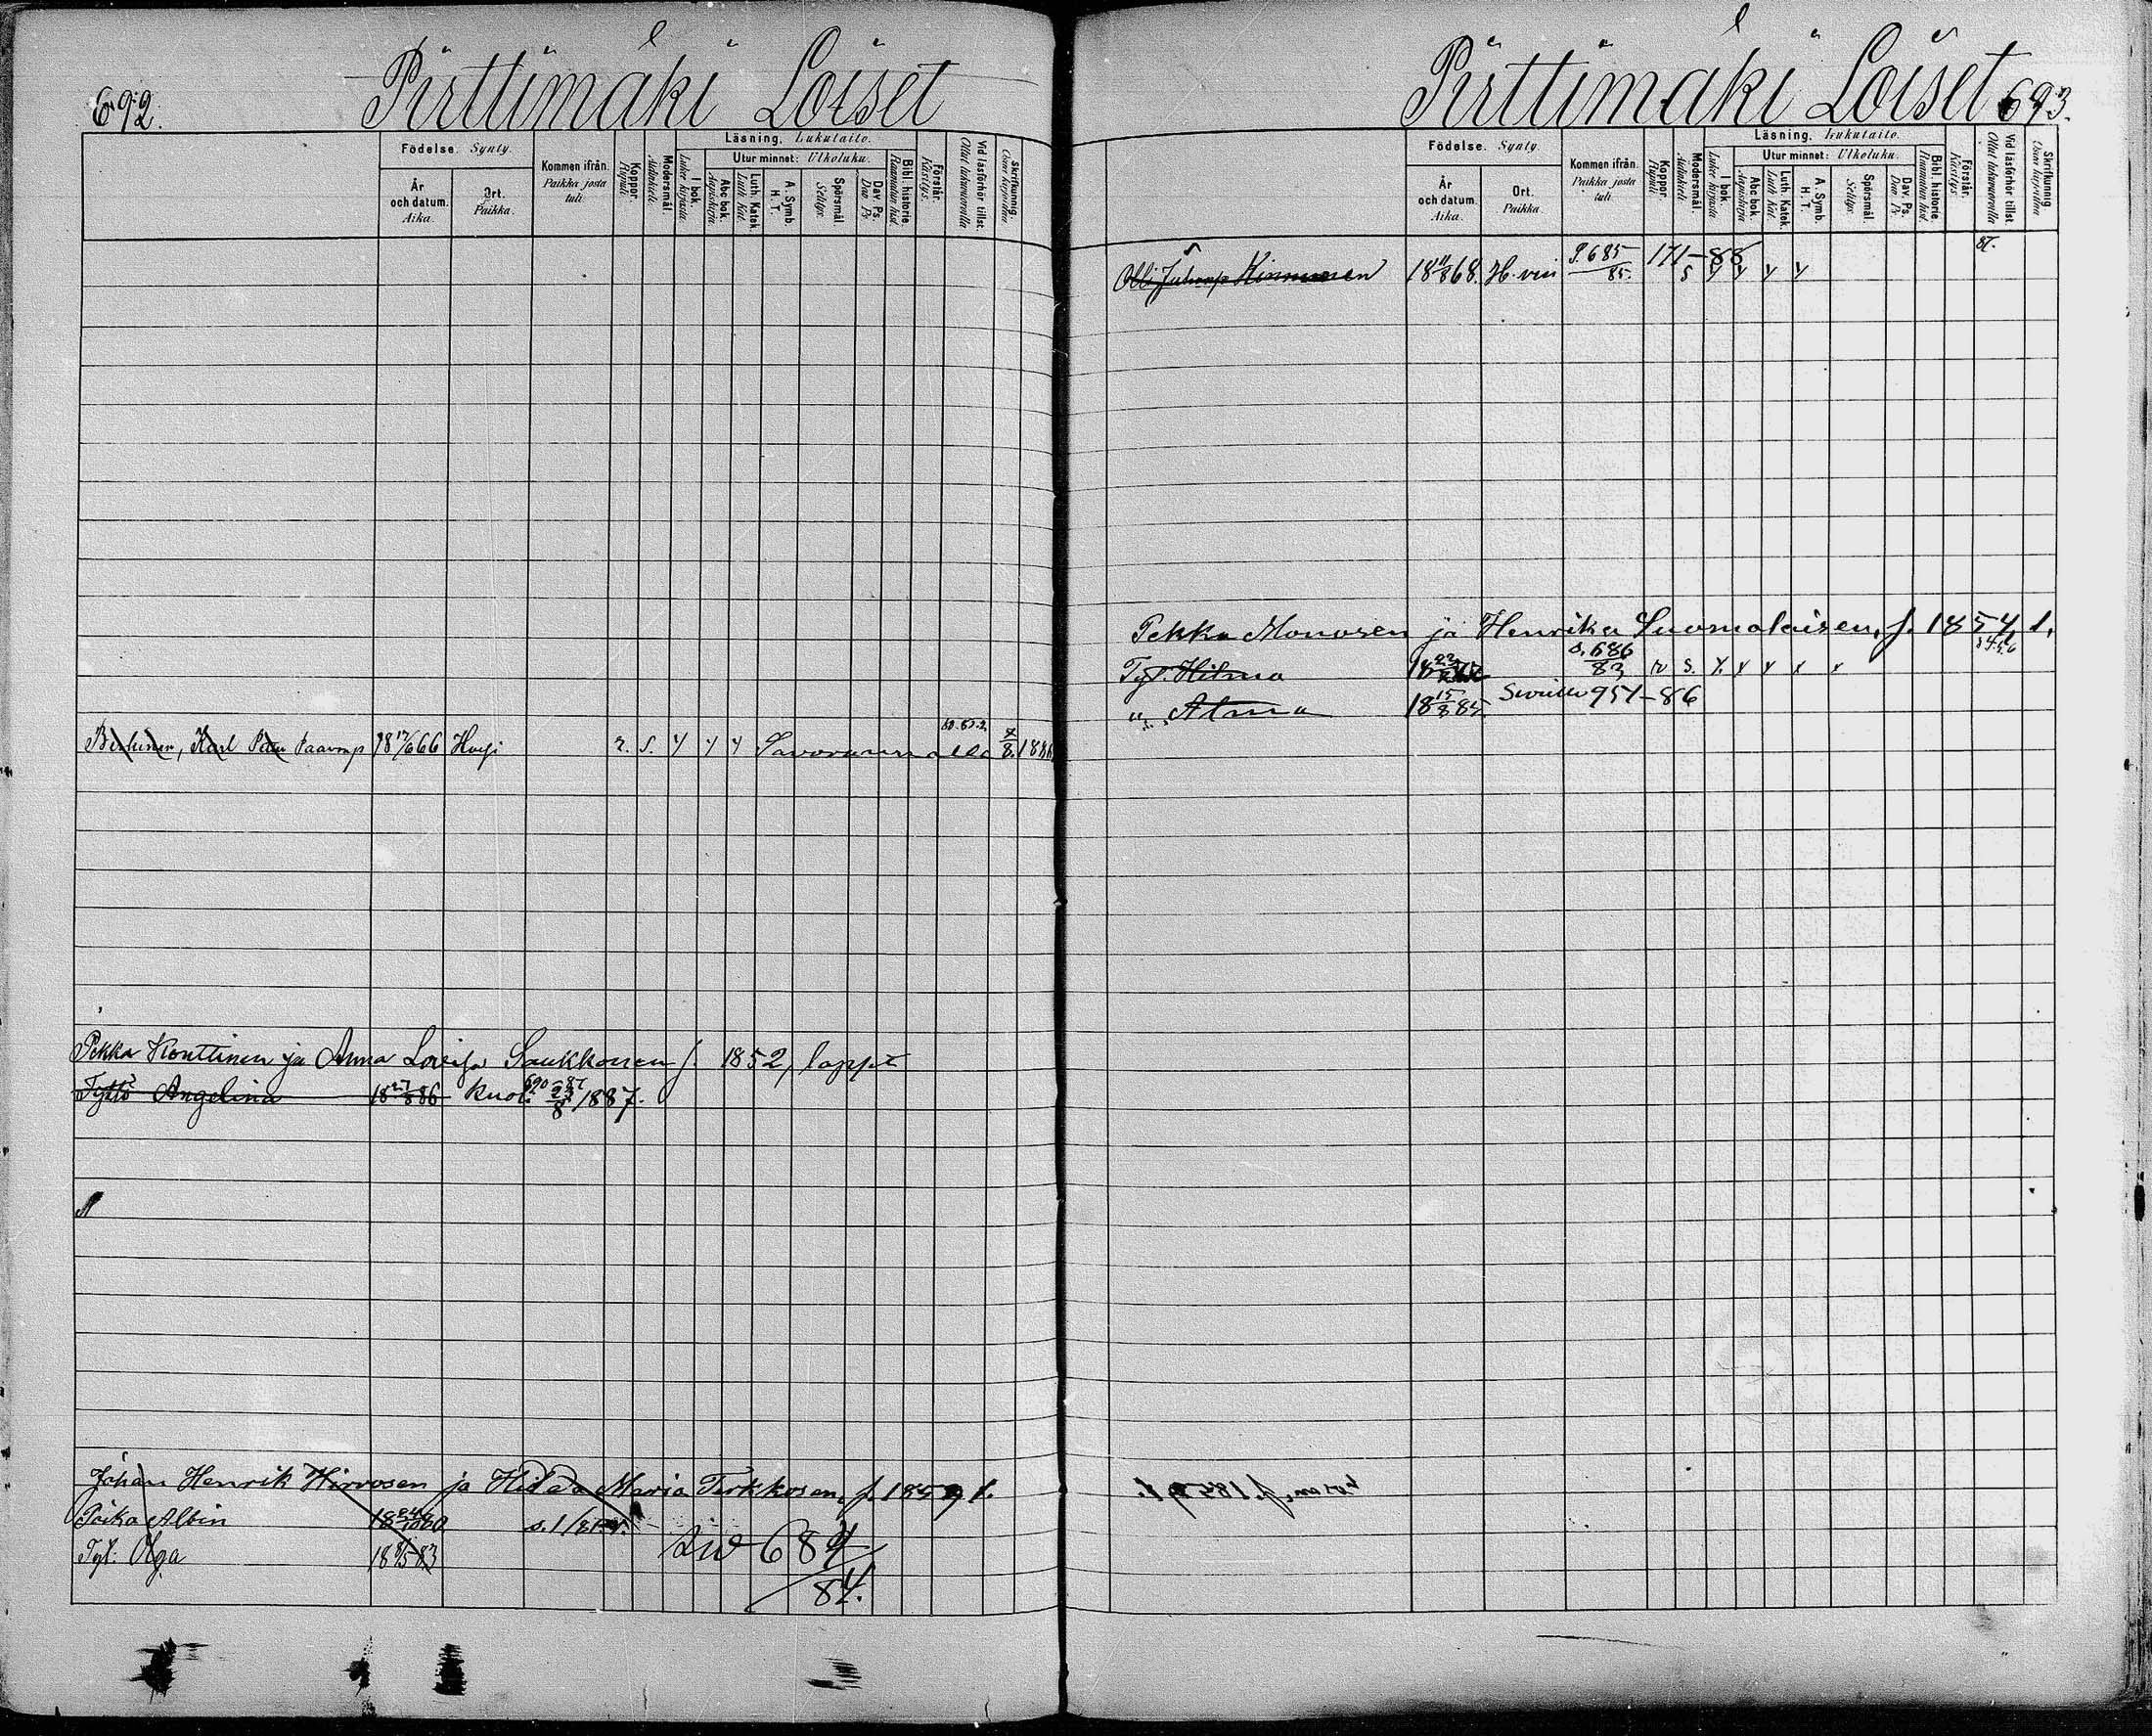 692.
Pirttimäki Loiset
Födelse. Synty.
År och datum. Aika.
Ort. Paikka.
Kommen ifrån. Paikka josta tuli.
Koppor. Rupuli
Modersmål. Äidinkieli.
Läsning. Lukutaito.
I bok. Lukee kirjasta.
Utur minnet: Ulkoluku.
Abc bok. Aapiskirja.
Luth. Katek. Luth. Kat.
A. Symb. H. T.
Spörsmål. Selitys.
Dav. Ps. Dav. Ps.
Bibl. historie. Raamatun hist.
Förstår. Käsitys.
Vid läsförhör tillst. Ollut lukuvuorolla
Skrifkunnig. Osaa kirjoittaa
Karl Paavonp 18 17/6 66 r. s. y y y 8. 1886
Pekka Konttinen ja Anna Lovisa Saukkonen f. 1852, lapset
Tyttö Angelina 18 27/8 86 kuoli 690-87 23/8 1887.
Johan Henrik Hirvosen ja Hilda Maria Turkkosen, f. 1859 l.
Poika Albin
Tyt: Olga 18 8/5 83
siv 684
84.
Pirttimäki Loiset 693.
Födelse. Synty.
År och datum. Aika.
Ort. Paikka.
Kommen ifrån. Paikka josta tuli.
Koppor. Rupuli
Modersmål. Äidinkieli
Läsning. Lukutaito.
I bok. Lukee kirjasta
Utur minnet: Ulkoluku.
Abc bok. Aapiskirja
Luth. Katek. Luth. Kat.
A. Symb. H. T.
Spörsmål. Selitys.
Dav. Ps. Dav. Ps.
Bibl. historie. Raamatun hist.
Förstår. Käsitys.
Vid läsförhör tillst. Ollut lukuvuorolla
Skrifkunnig Osaa kirjoittaa
Olli Juhonp. Hinnunen 18 11/8 68. P. 685/85. 171-86 s y y y y 87.
Pekka Monosen ja Henrika Suomalaisen, f. 1854 l.
Tyt. Hilma s. 686/83 r s. y. y y x x
" Alma 18 15/8 85. Sivulle 951-86